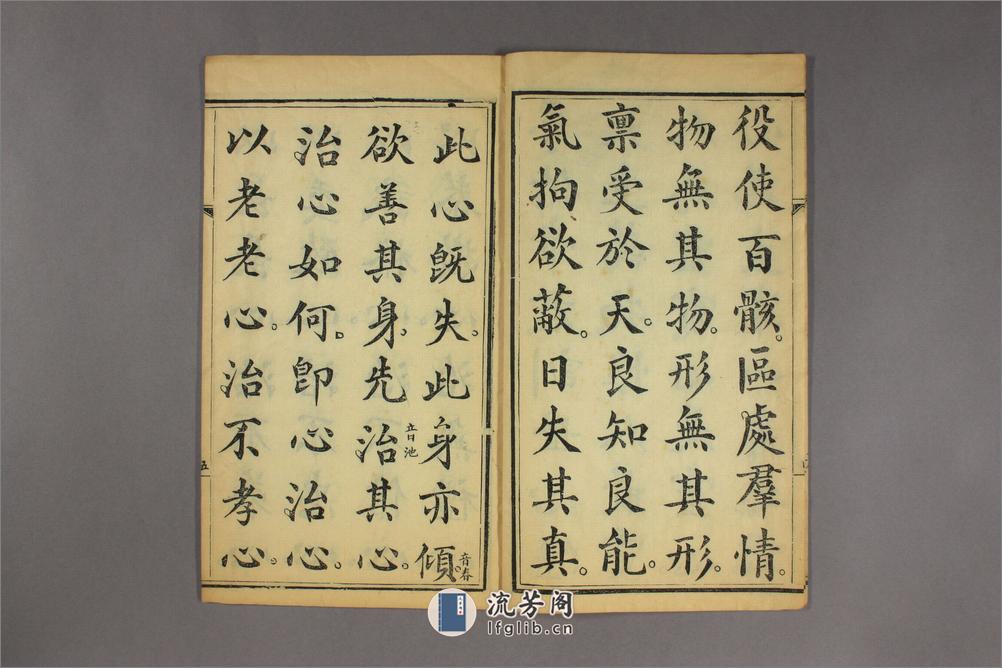 役使百骸。區處羣情。
物無其物。形無其形。
禀受於天。良知良能。
氣拘欲蔽。日失其真。
此心旣失。此身亦傾。音春
欲善其身。先治音池其心。
治心如何。卽心治心。
以老老心。治不孝心。
五
流芳阁
lfglib.cn